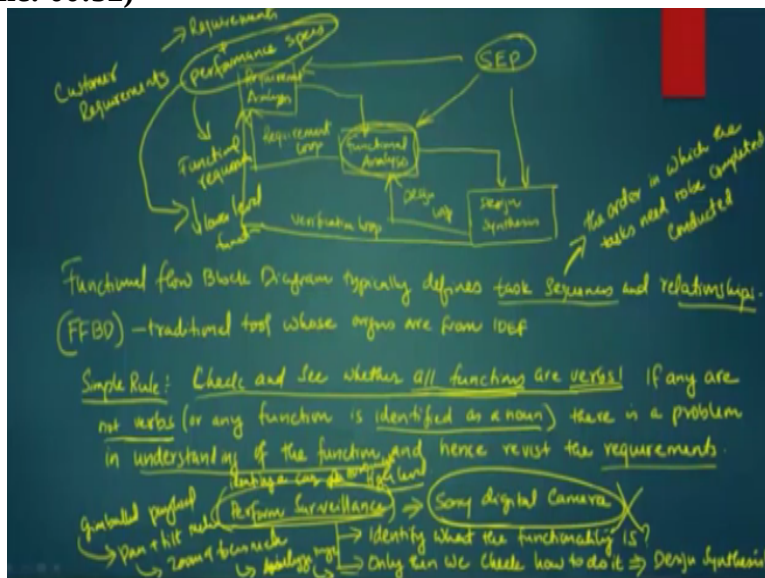 → Requirements
performance specs
SEP
Customer
Requirements
Requirement
Analysis
Functional
requirements
Requirement
Loop
Functional
Analysis
Design
Loop
Design
Synthesis
lower level
funct
verification loop
the order in which the
tasks need to be completed
conducted
Functional flow Block Diagram typically defines task sequences and relationships.
(FFBD) – traditional tool whose origins are from IDEF
Simple Rule: Check and see whether all functions are verbs! If any are
not verbs (or any function is identified as a noun) there is a problem
in understanding of the function, and hence revisit the requirements.
High level
Perform Surveillance ⇒ Sony digital Camera X
gimballed payload
→ Identify what the functionality is?
Pan + tilt
→ Only then we check how to do it ⇒ Design Synthesis